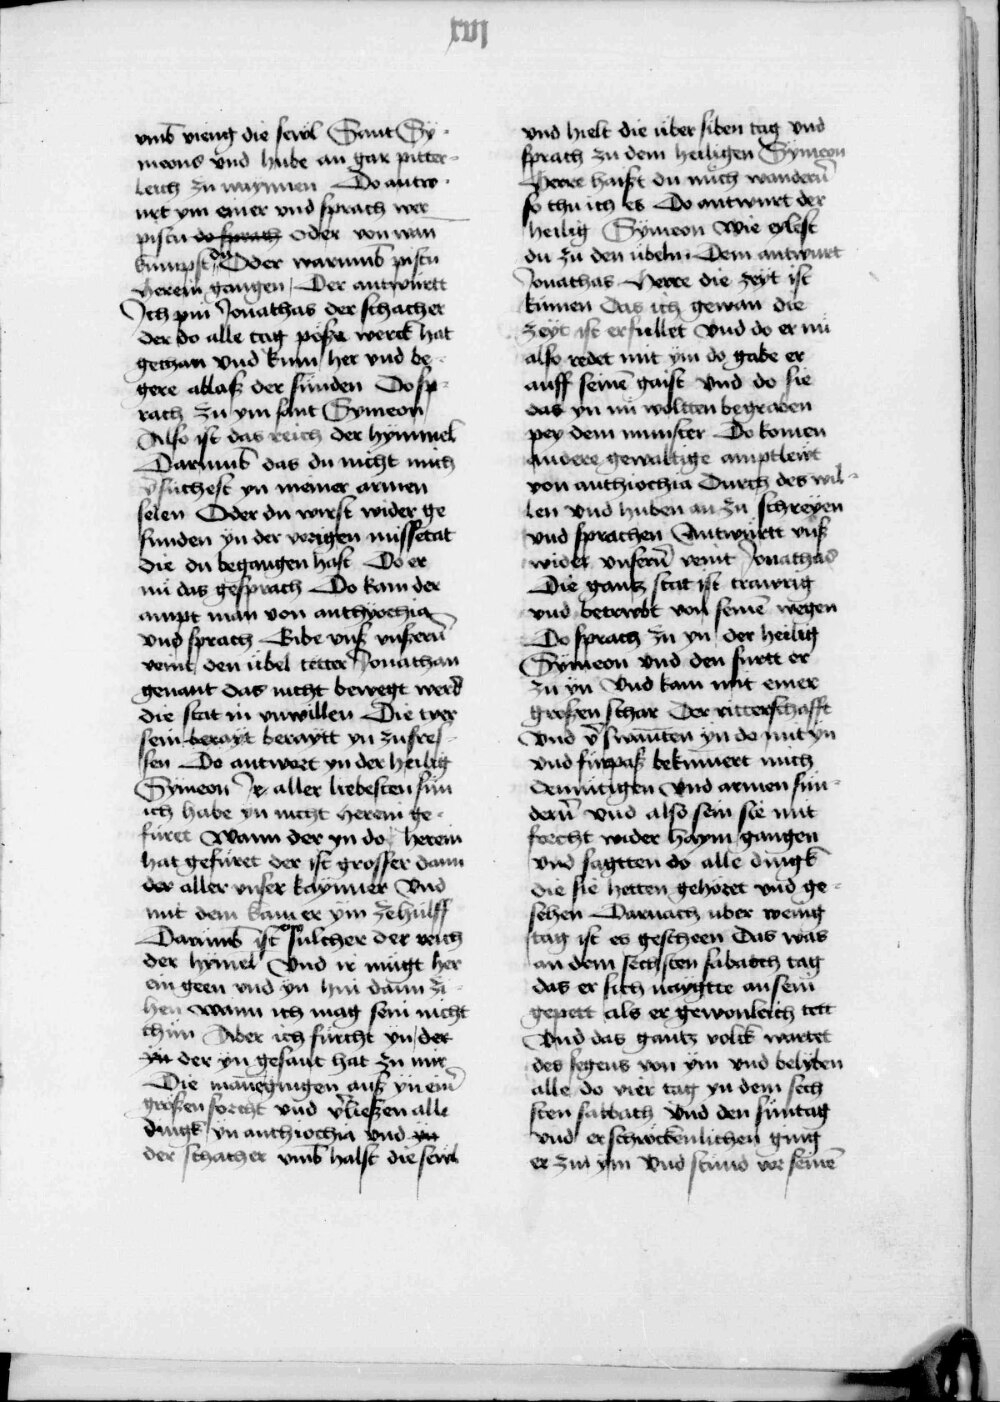 xvj
vmb vieng die sewl Sant Sy-
meons vnd hube an gar pitter-
leich zu waynnen Do antw-
urt ym einer vnd sprach wer
pistu do sprach oder von wan
kumpst du Oder warumb pistu
herein gangen Der antwurtt
Ich pin Jonathas der schacher
der do alle tag poße werck hat
gethan vnd kum her vnd be-
gere ablaß der sünden Do sp-
rach zu ym sant Symeon
Also ist das reich der hymmel
Darumb das du nicht mich
v̄suchest yn meiner armen
selen Oder du wirst wider ge
funden yn der vorigen missetat
die du begangen hast Do er
nü das gesprach Do kam der
ampt man von anthyochia
vnd sprach Gibe vnß vnßern̄
veint den übel tetter Jonathan
genant das nicht bewegt werd
die stat in vnwillen Die tyer
sein berayt beraytt yn zu fres-
sen Do antwort yn der heilig
Symeon Ir aller liebesten sün
ich habe yn nicht herein ge-
füret Wann der yn do herein
hat gefüret der ist grosser dann
der aller vnser kaynner Vnd
mit dem kam er ym zehülff
Darumb ist sülcher der reich
der hymel Vnd ir mügt her
ein geen vnd yn hin dann zi-
hen wann ich mag sein nicht
thün Aber ich fürcht yn der
yn der yn gesant hat zu mir
Die man gingen auß yn ein̄
großen forcht vnd v̄ließen alle
dingk yn anthiochia vnd yn
der schacher vmb halst die sewl
vnd hielt die über siben tag vnd
sprach zu dem heiligen Symeon
Herre haist du mich wandern̄
so thu ich es Do antwurt der
heilig Symeon Wie eylest
du zu den übeln Dem antwurt
Jonathas Herre die zeyt ist
kümen Das ich gewan die
zeyt ist erfullet Vnd do er nü
also redet mit ym do gabe er
auff seinē gaist Vnd do sie
das yn nü woltten begraben
pey dem munster Do komen
andere gewaltige amptlewt
von anthiochia Durch des wil-
len Vnd huben an zu schreyen
vnd sprachen Antwürtt vnß
wider vnsern̄ veint Jonathas
Die gantz stat ist trawrig
vnd betrwbt von seinē wegen
Do sprach zu yn der heilig
Symeon Vnd den furtt er
zu yn Vnd kam mit einer
großen schar Der ritterschafft
Vnd v̄swantten yn do mit yn
vnd fürpaß bekümert mich
demütigen Vnd armen sün-
dern̄ Vnd also sein sie mit
forcht wider haym gangen
Vnd sagtten do alle dingk
die sie hetten gehöret vnd ge-
sehen Darnach über wenig
tag ist es gescheen Das was
an dem sechsten sabatth tag
das er sich naygtte an sein
gepett als er gewonleich tett
Vnd das gantz volck wartet
des segens von ym vnd belyben
alle do vier tag yn dem sech
sten sabbath Vnd den süntag
vnd erschrockenlichen ging
er zu ym Vnd stünd vor seinē